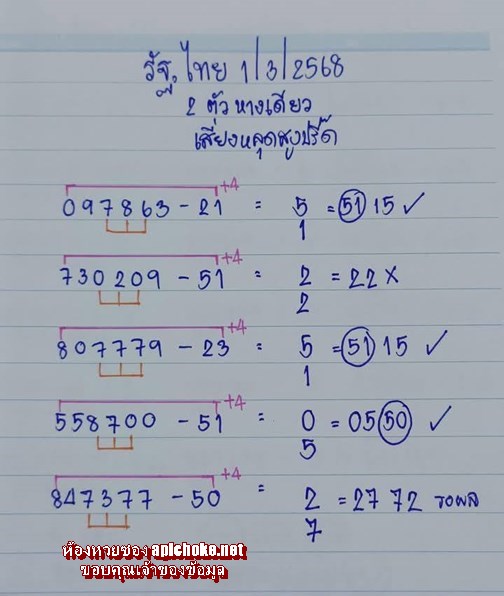 รัฐ ไทย 1/3/2568
2 ตัว หางเดียว
เสี่ยงหลุดสูงปรี๊ด
+4
097863 - 21 = 5 = 51 15 ✓
1
+4
730209 - 51 = 2 = 22 X
2
+4
807779 - 23 = 5 = 51 15 ✓
1
+4
558700 - 51 = 0 = 05 50 ✓
5
+4
847377 - 50 = 2 = 27 72 รอผล
7
ห้องหวยซอง apichoke.net
ขอบคุณเจ้าของข้อมูล